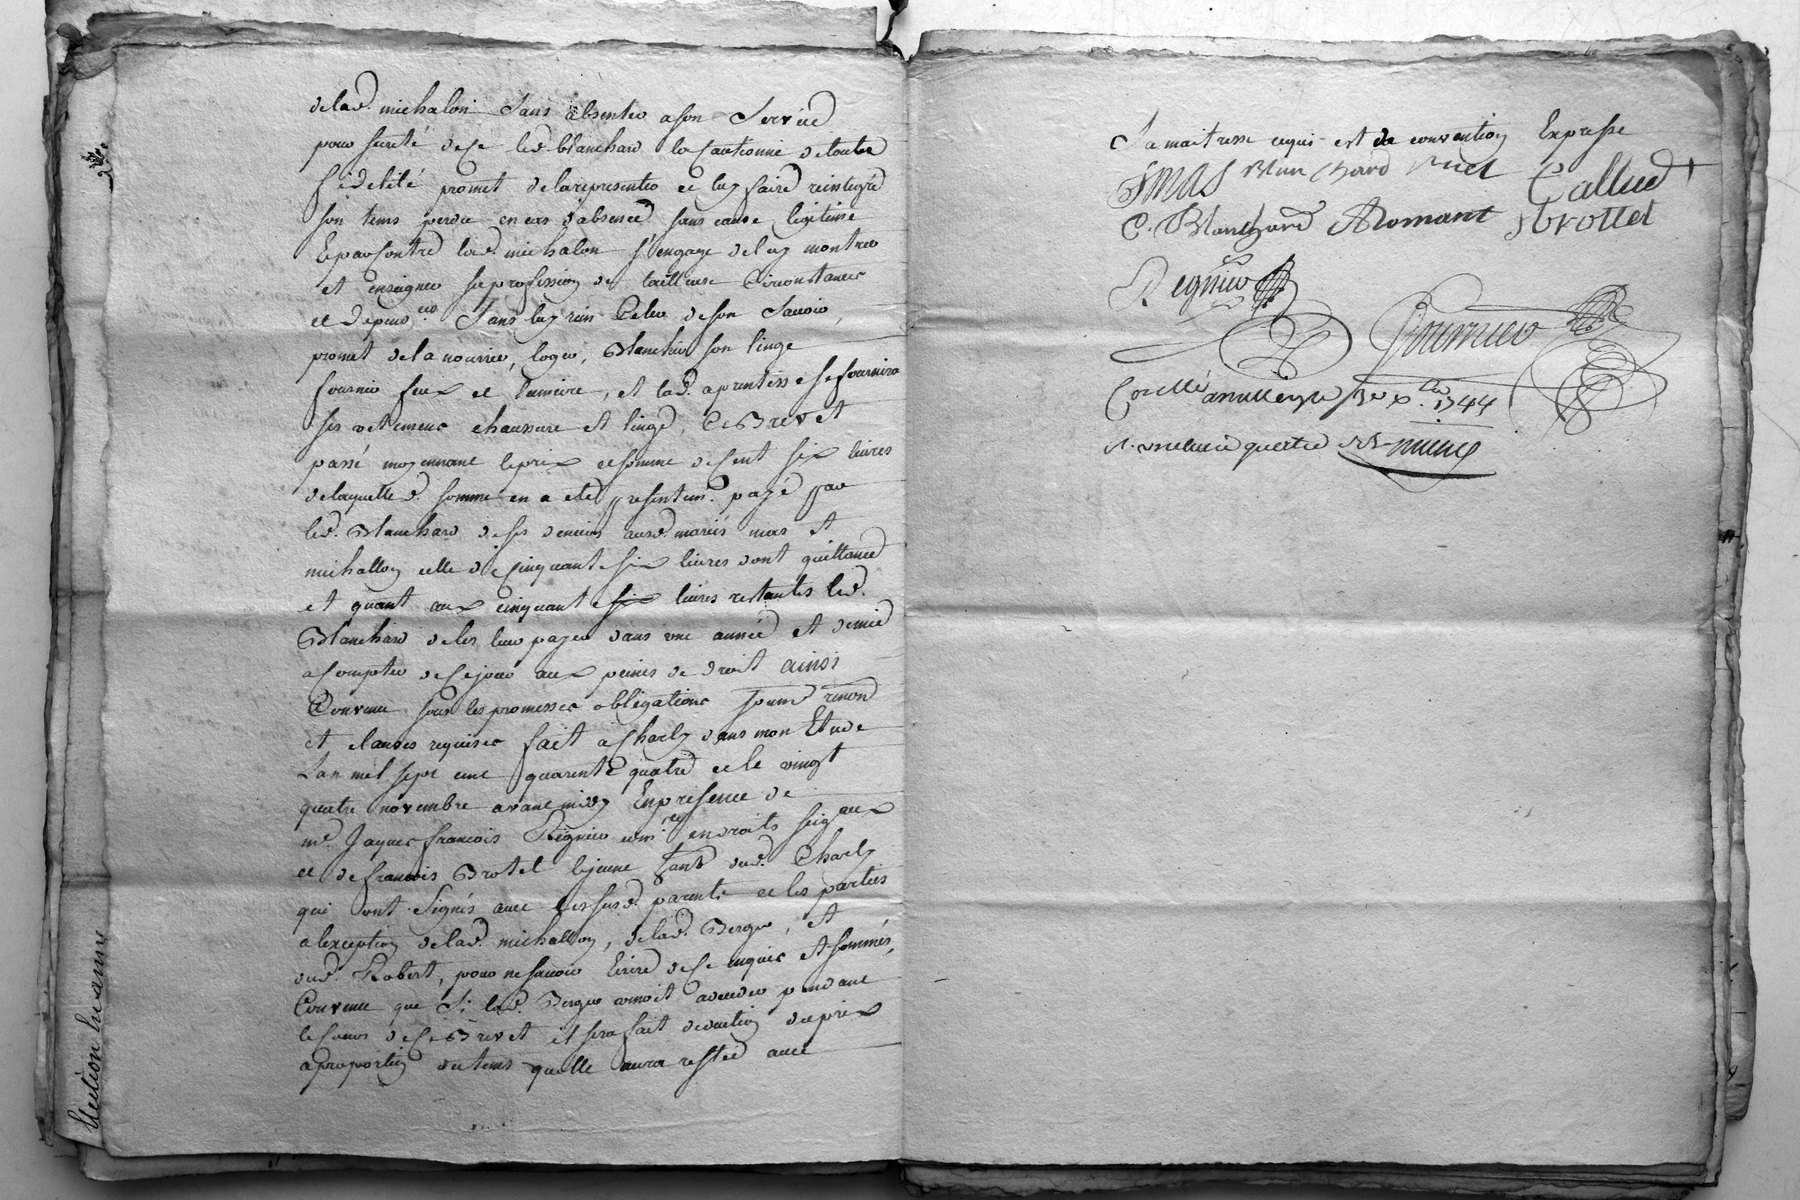 delad. michalon Sans absenter a son Service
pour sureté dece led. blanchard la Cautionne de toutte
fidelité promet delarepresenter et luy faire reintegré
son tems perdu en cas d'absence sans cause legitime
Et par Contre lad. michalon s'engage deluy montrer
et enseigner sa profession de tailleuse Circonstances
et dependces Sans luy rien Celer deson Savoir,
promet dela nourrir, loger, Blanchir son linge
fournir feux et lumiere, et lad. aprentisse se fournira
ses vetemens chaussure et linge, Ce Brevet
passé moyennant leprix et somme de Cent six livres
delaquelle d. somme en a eté presentemt. payé par
led. Blanchard deses deniers ausd. mariés mas et
michallon celle de Cinquante six livres dont quittance
et quant aux cinquante livres restantes led.
Blanchard de les leur payer dans une année et demie
a Compter de Ce jour aux peines de droit ainsi
Convenu sous les promesses obligations soum renon
et clauses requises fait a Charly dans mon Etude
L'an mil sept cent quarente quatre et le vingt
quatre novembre avant midy En presence de
mr. Jaques francois Regnier en droits seigaux
et de francois Brotet lejeune dud. Charly
qui ont Signés avec les susd. parents et les parties
a lexception de lad. michallon, de lad. Berger, et
dud. Robert, pour ne savoir Ecrire de Ce requis et sommés,
Convenu que Si lad. Berger venoit a deceder pendant
le Cours de Ce Brevet il sera fait deduction du prix
a proportion du tems quelle aura resté avec
Sa maitresse ce qui est de convention Expresse
JMAS Blanchard Callied
C. Blanchard Romant fbrottet
Regnier
Fournier
Conllé a Xbre. 1744
Election